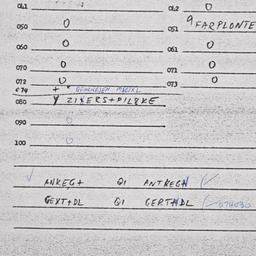 041 042 0
050 0 051 9 FARPLONTE
060 0 061 0
070 0 071 0
072 0 073 0
074 +
080 Y ZIKERS+PILYKE
090 0
100 0
ANKEG+ Q1 ANTKEGN
GEXT+DL Q1 GERTNDL 074030